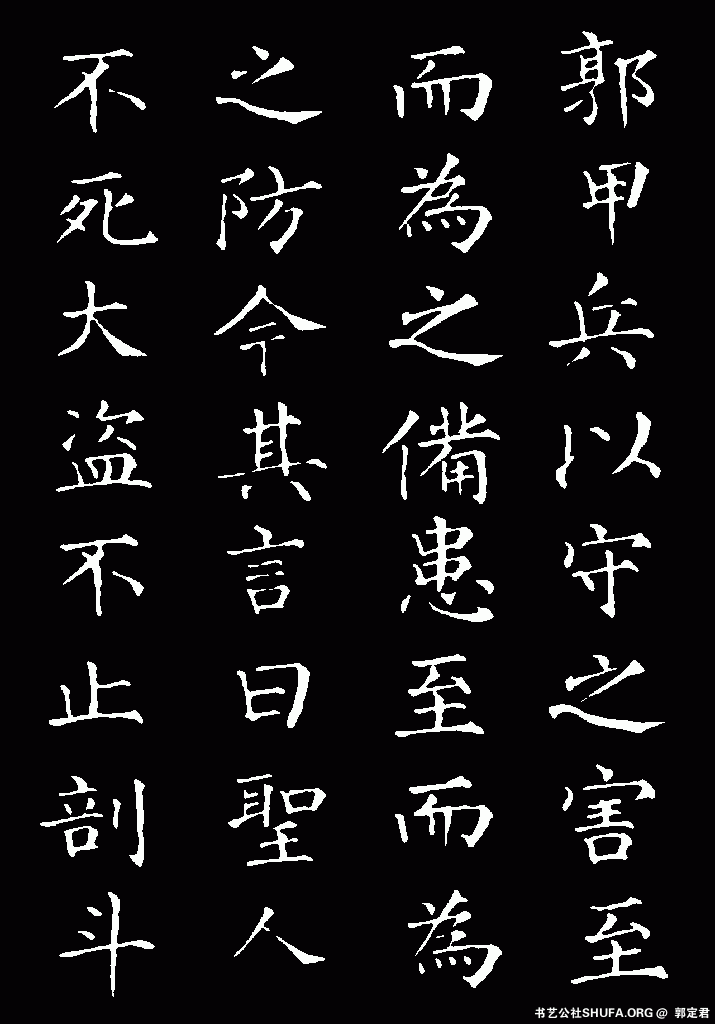 郭甲兵以守之害至
而為之備患至而為
之防今其言曰聖人
不死大盜不止剖斗
书艺公社SHUFA.ORG @ 郭定君